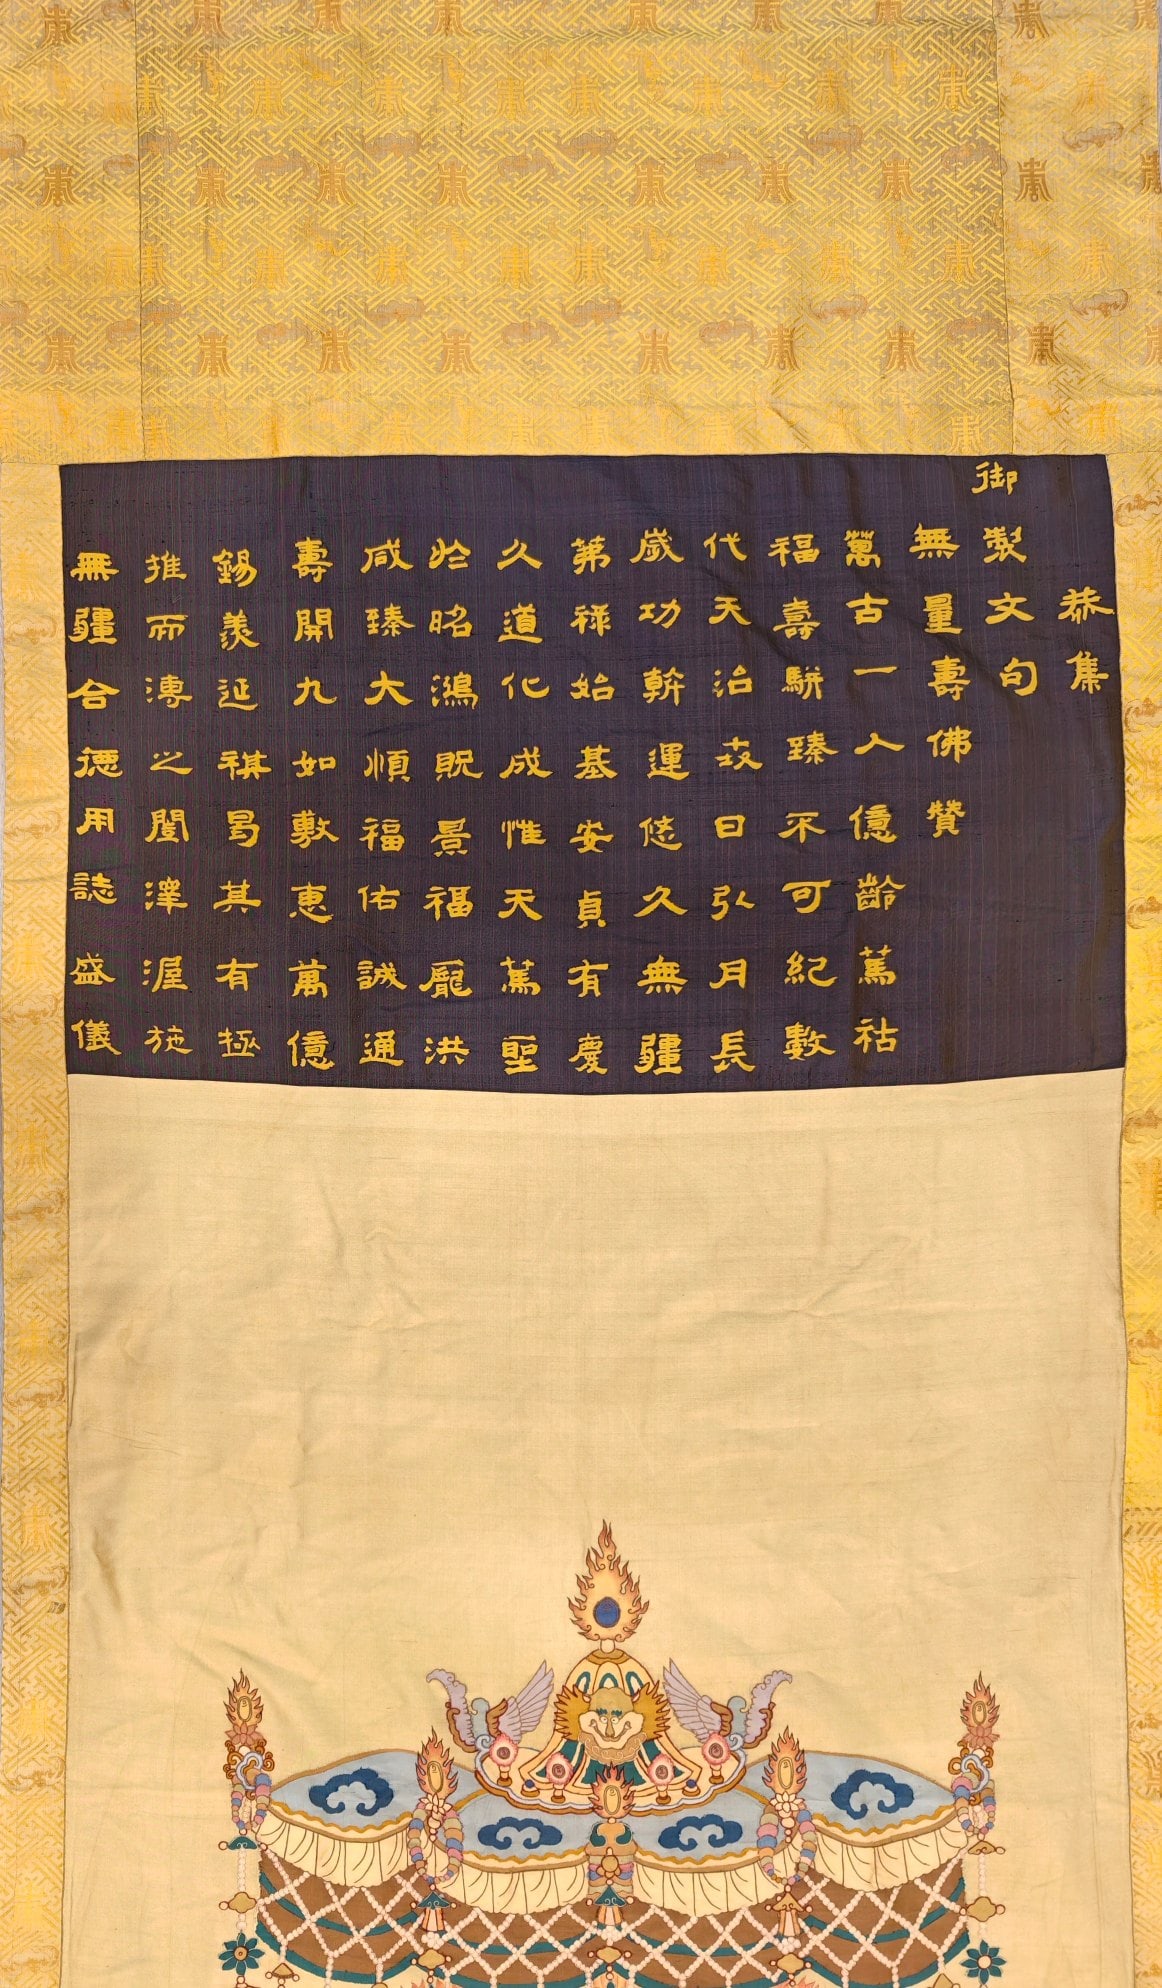 恭集
御製文句
無量壽佛贊
萬古一人億齡篤祜
福壽駢臻不可紀數
代天治日引月長
歲功斡運悠久無疆
茀祿始基安貞有慶
久道化成惟天篤聖
於昭鴻貺景福龐洪
咸臻大順福佑諴通
壽開九如敷惠萬億
錫羨延祺曷其有極
推而溥之闓澤渥施
無疆合德用誌盛儀